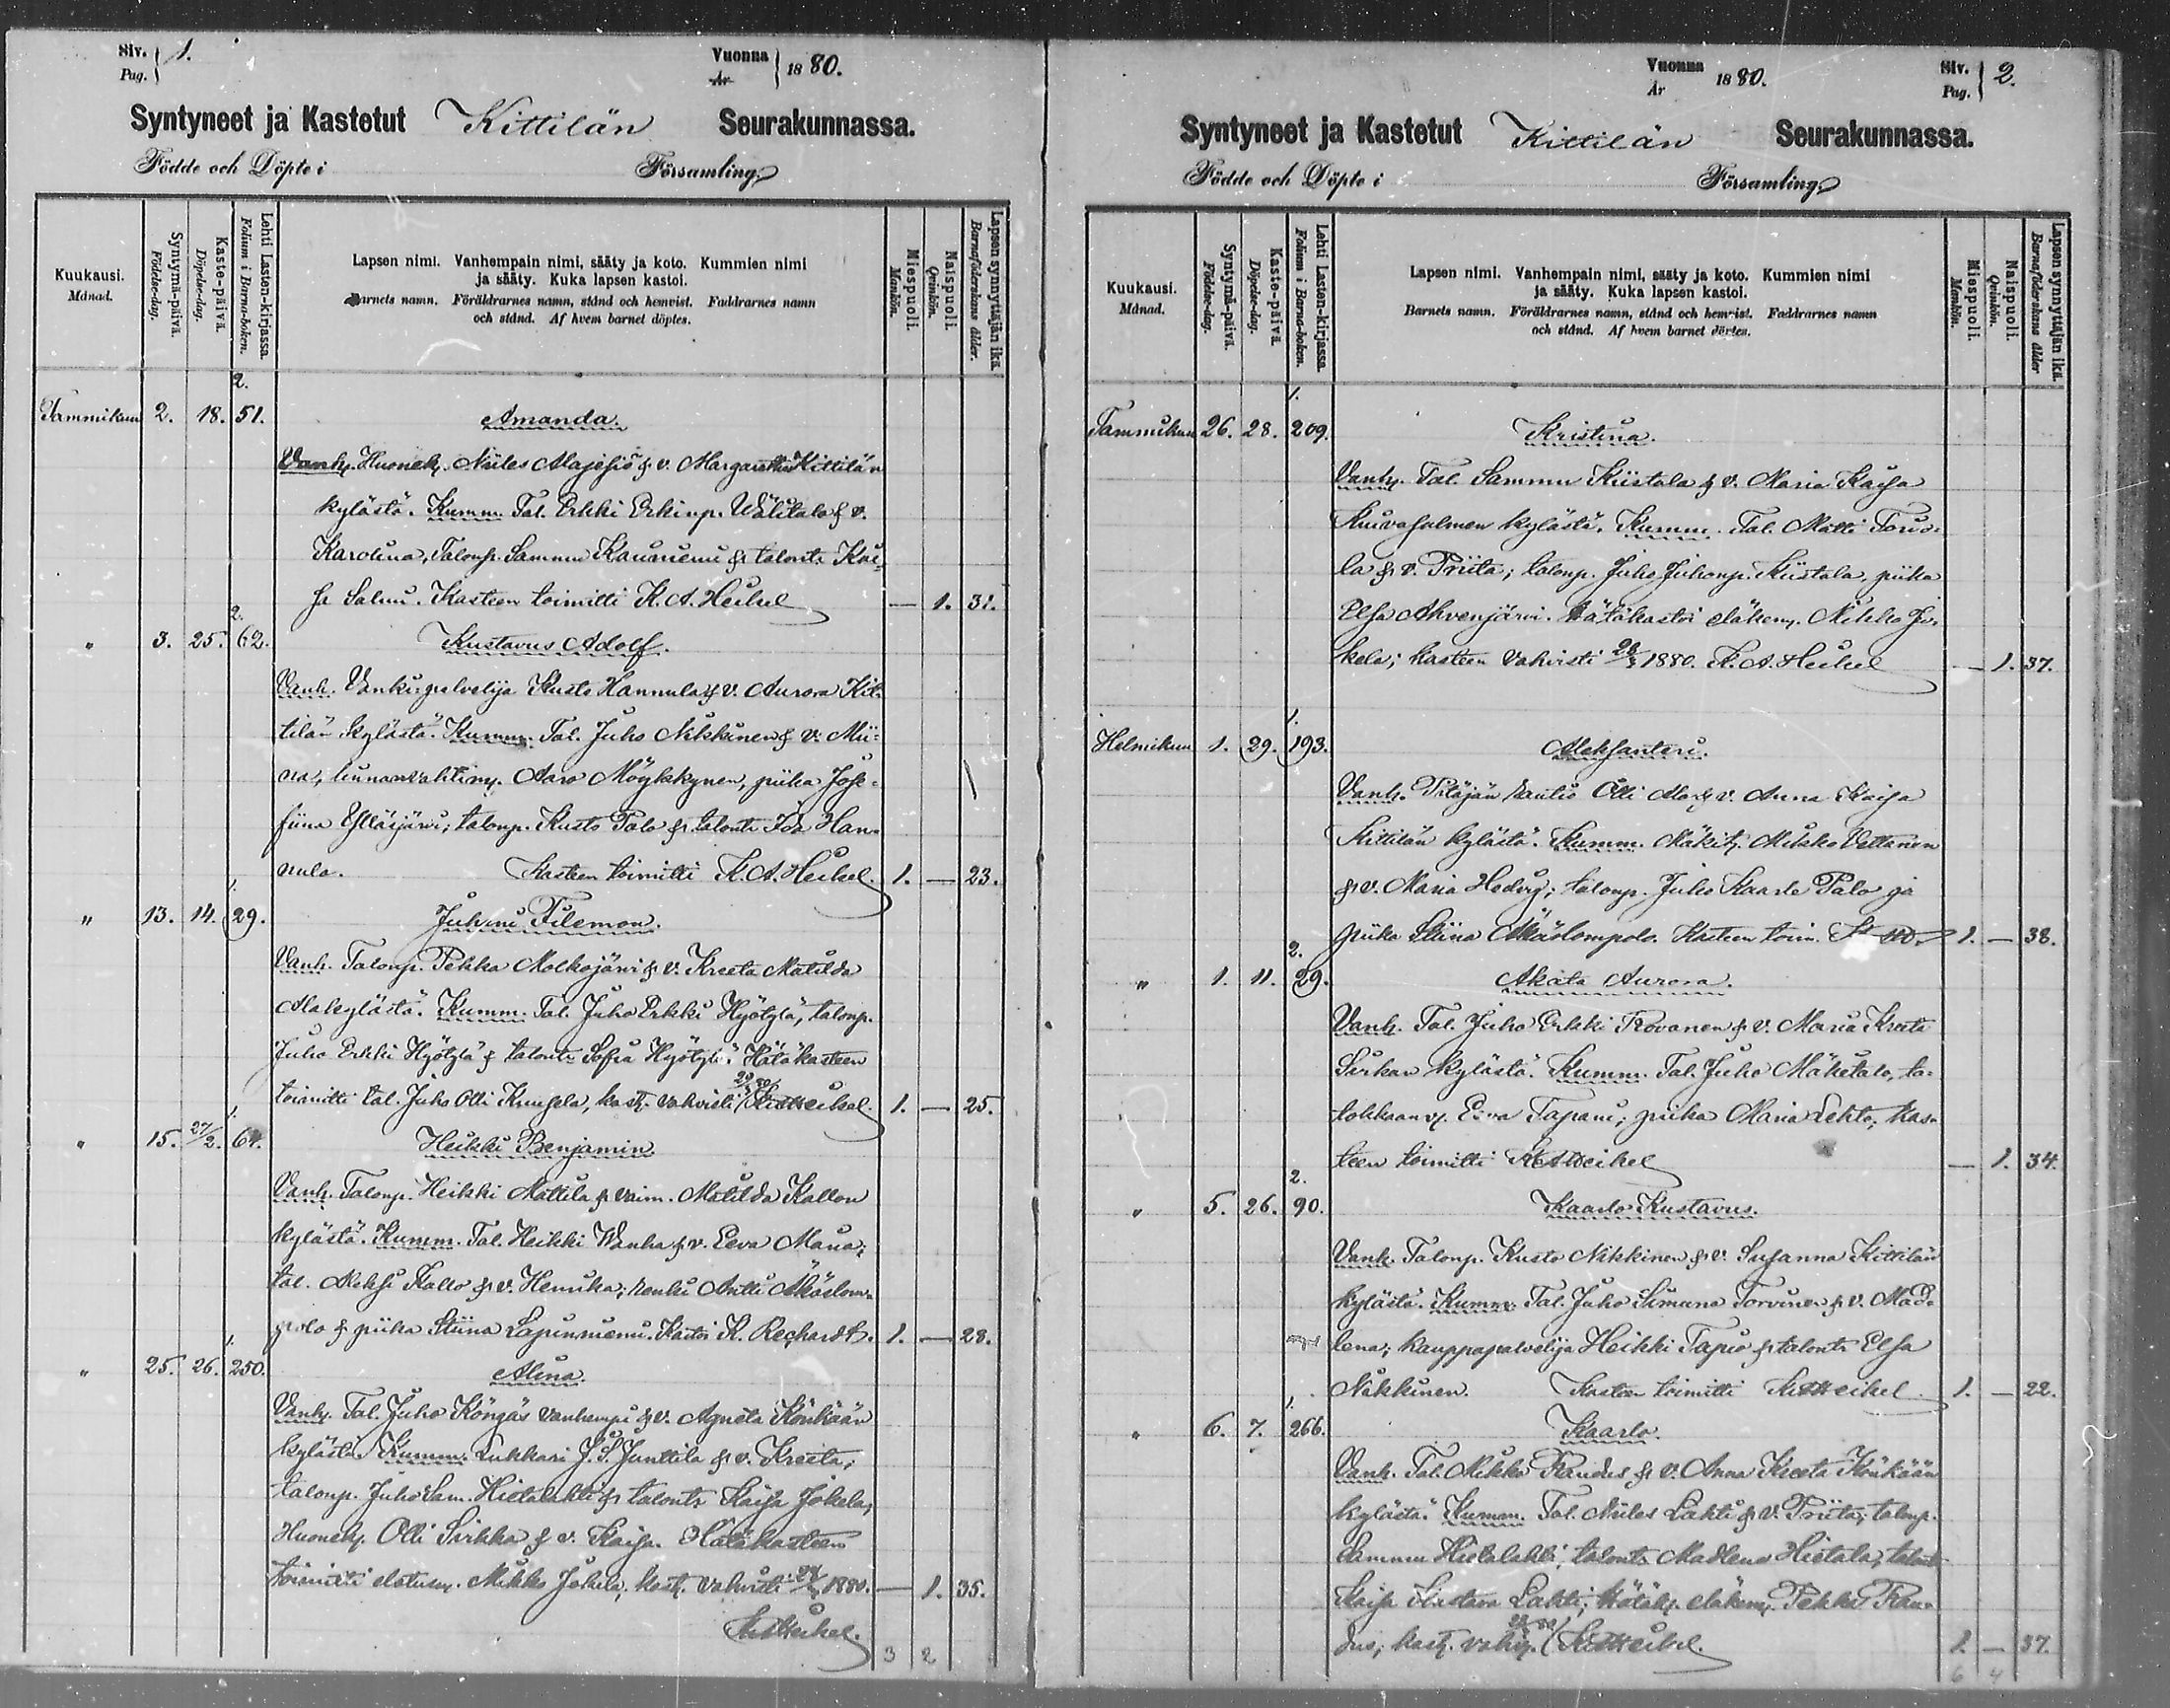 Siv. Pag. 1.
Vuonna År 1880.
Syntyneet ja Kastetut Kittilän Seurakunnassa.
Födde och Döpte i Församling
Kuukausi. Månad.
Syntymä-päivä. Födelse-dag.
Kaste-päivä. Döpelse-dag.
Lehti Lasten-kirjassa. Folium i Barna-boken.
Lapsen nimi. Vanhempain nimi, sääty ja koto. Kummien nimi
ja sääty. Kuka lapsen kastoi.
Barnets namn. Föräldrarnes namn, stånd och hemvist. Faddrarnes namn
och stånd. Af hvem barnet döptes.
Miespuoli. Mankön.
Naispuoli. Qvinkön.
Lapsen synnyttäjän ikä. Barnaföderskans ålder.
2.
Tammikuu 2. 18. 51. Amanda.
Vanh. Huonek. Niiles Alajesiö & v. Margareta Kittilän
kylästä. Kumm. Tal. Erkki Erkinp. Wälitalo & v.
Karolina, Talonp. Sammu Kaurniemi & talontr. Kai-
sa Salmi. Kasteen toimitti K. A. Heikel — 1. 31.
2.
" 3. 25. 62. Kustavus Adolf.
Vanh. Vankipalvelija Kusto Hannula & v. Aurora Kit-
tilän kylästä. Kumm. Tal. Juho Nikkinen & v. Mii-
na, linnanvahtimp. Aaro Möykkynen, piika Jose-
fiina Ylläsjärvi, talonp. Kusto Palo & talontr. Ida Han-
nula. Kasteen toimitti K. A. Heikel. 1. — 23.
1.
" 13. 14. 29. Juhani Filemon.
Vanh. Talonp. Pekka Molkojärvi & v. Kreeta Matilda
Alakylästä. Kumm. Tal. Juho Erkki Hyötylä, talonp.
Juho Erkki Hyötylä & talontr. Sofia Hyötylä. Hätäkasteen
toimitti tal. Juho Olli Kuusela, kast. vahvisti KAHeikel. 1. — 25.
1.
" 15. 27/2. 64. Heikki Benjamin
Vanh. Talonp. Heikki Mattila & vaim. Matilda Kallon
kylästä. Kumm. Tal. Heikki Wanha & v. Eeva Maria;
tal. Aleksi Kallo & v. Henrika; renki Antti Äkäslom-
polo & piika Stiina Lapinniemi. Kastoi K. Rechardt. 1. — 28.
1.
" 25. 26. 250. Alina.
Vanh. Tal. Juho Köngäs vanhempi & v. Agneta Könkään
kylästä. Kumm. Lukkari J. S. Junttila & v. Kreeta,
talonp. Juho Sam. Hietalahti & talontr Kaisa Jokela,
Huonek. Olli Sirkka & v. Kaisa. Hätäkasteen
toimitti elätusm. Mikko Jokela, kast. vahvisti 1880. — 1. 35.
KAHeikel.
3 2
Vuonna År 1880.
Siv. Pag. 2.
Syntyneet ja Kastetut Kittilän Seurakunnassa.
Födde och Döpte i Församling
Kuukausi. Månad.
Syntymä-päivä. Födelse-dag.
Kaste-päivä. Döpelse-dag.
Lehti Lasten-kirjassa. Folium i Barna-boken.
Lapsen nimi. Vanhempain nimi, sääty ja koto. Kummien nimi
ja sääty. Kuka lapsen kastoi.
Barnets namn. Föräldrarnes namn, stånd och hemvist. Faddrarnes namn
och stånd. Af hvem barnet döptes.
Miespuoli. Mankön.
Naispuoli. Qvinkön.
Lapsen synnyttäjän ikä. Barnaföderskans ålder
1.
Tammikuu 26. 28. 209. Kristina.
Vanh. Tal. Sammu Kiistala & v. Maria Kaisa
Kuivasalmen kylästä. Kumm. Tal. Matti Torvo-
la & v. Priita; talonp. Juho Juhonp. Kiistala, piika
Elsa Ahvenjärvi. Hätäkastoi eläkem. Mikko Jo-
kela; kasteen vahvisti 1880. K. A. Heikel — 1. 37.
1.
Helmikuu 1. 29. 193. Aleksanteri.
Vanh. Pitäjän rautio Olli Ala & v. Anna Kaisa
Kittilän kylästä. Kumm. Mäkit. Mikko Vettanen
& v. Maria Hedvig; talonp. Juho Kaarle Palo ja
piika Stiina Äkäslompolo. Kasteen toim. 1. — 38.
2.
" 1. 11. 29. Akata Aurora.
Vanh. Tal. Juho Erkki Rovanen & v. Maria Kreeta
Sirkan kylästä. Kumm. Tal. Juho Mäkitalo, ta-
lokkaan v. Eeva Tapani; piika Maria Lehto, kas-
teen toimitti KAHeikel — 1. 34.
2.
" 5. 26. 90. Kaarlo Kustavus.
Vanh. Talonp. Kusto Nikkinen & v. Susanna Kittilän
kylästä. Kumm. Tal. Juho Simuna Torvinen & v. Mad-
lena; kauppapalvelija Heikki Tapio & talontr Elsa
Nikkinen. Kasteen toimitti KAHeikel. 1. — 22.
1.
" 6. 7. 266. Kaarlo.
Vanh. Tal. Mikko Raudus & v. Anna Kreeta Könkään
kylästä. Kumm. Tal. Niiles Lahti & v. Priita; talonp.
Sammu Hietalahti, talontr. Madlena Hietala, talontr
Kaisa Kustava Lahti; Hätäk. eläkem. Pekka Rau-
dus; kast. vahv. KAHeikel. 1. — 37.
6 4